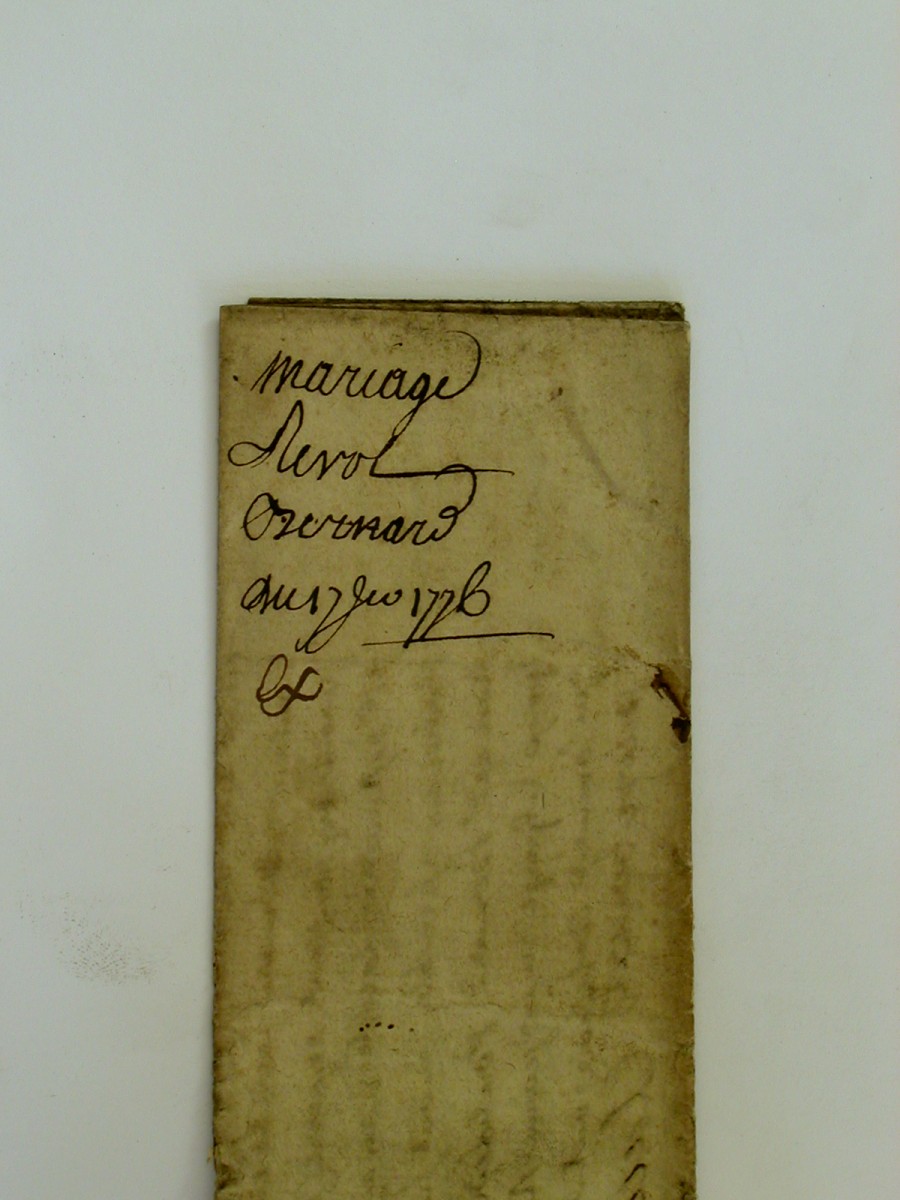 mariage
Revol
Bernard
du 17 Jer 1776
ex